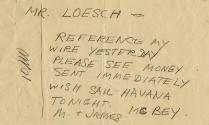 MR. LOESCH =
REFERENCE MY
WIRE YESTERDAY
PLEASE SEE MONEY
SENT IMMEDIATELY
WISH SAIL HAVANA
TONIGHT. MC BEY.
M. + JAMES